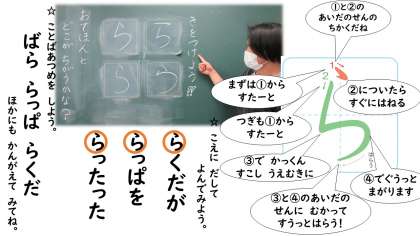 ☆ ことばあつめを しよう。
ばら らっぱ らくだ
ほかにも かんがえて みてね。
きをつけよう!!
おてほんと
どこが ちがうかな?
ら
ら
ら
ら
☆ こえに だして
よんでみよう。
らくだが
らっぱを
らったった
①と②の
あいだのせんの
ちかくだね
まずは①から
すたーと
②についたら
すぐにはねる
つぎも①から
すたーと
③で かっくん
すこし うえむきに
④でぐうっと
まがります
③と④のあいだの
せんに むかって
すうっとはらう!
1
2
ら
はらう